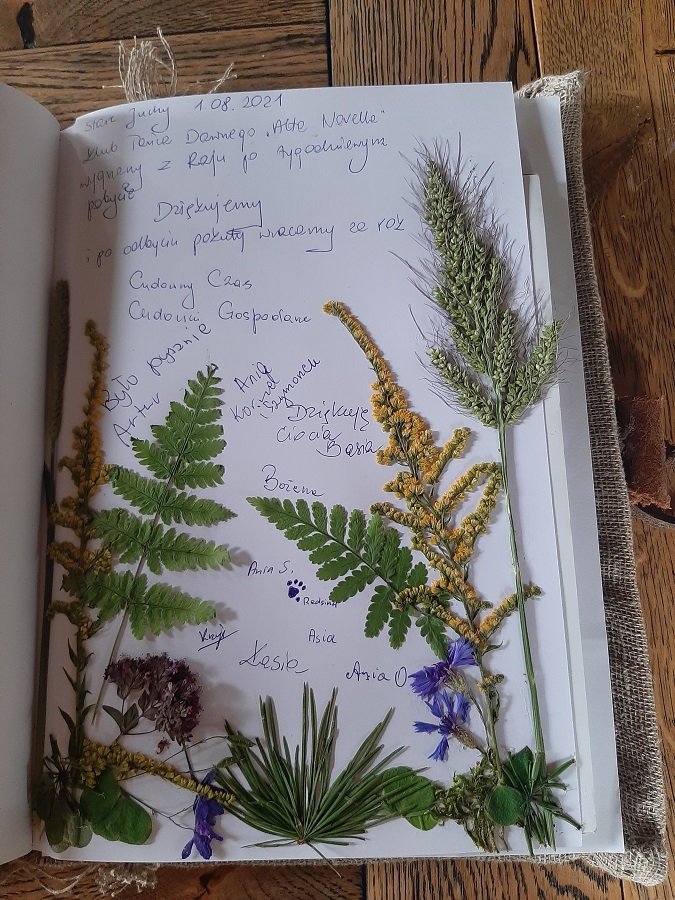 Stare Juchy 1.08.2021
Klub Tańca Dawnego "Alta Novella"
wygnany z Raju po tygodniowym
pobycie
Dziękujemy
i po odbyciu pokuty wracamy za rok
Cudowny Czas
Cudowni Gospodarze
Było pysznie
Artur
Ania
Dziękuję
Ciocia
Basia
Bożena
Ania S.
Asia
Kasia
Ania O